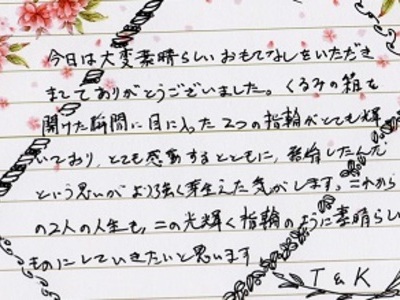 今日は大変素晴らしいおもてなしをいただき
ましてありがとうございました。くるみの箱を
開けた瞬間に目に入った2つの指輪がとても輝
いており、とても感動するとともに、結婚したんだ
という思いがより強く芽生えた気がします。これから
の2人の人生も、この光輝く指輪のように素晴らしい
ものにしていきたいと思います
T & K